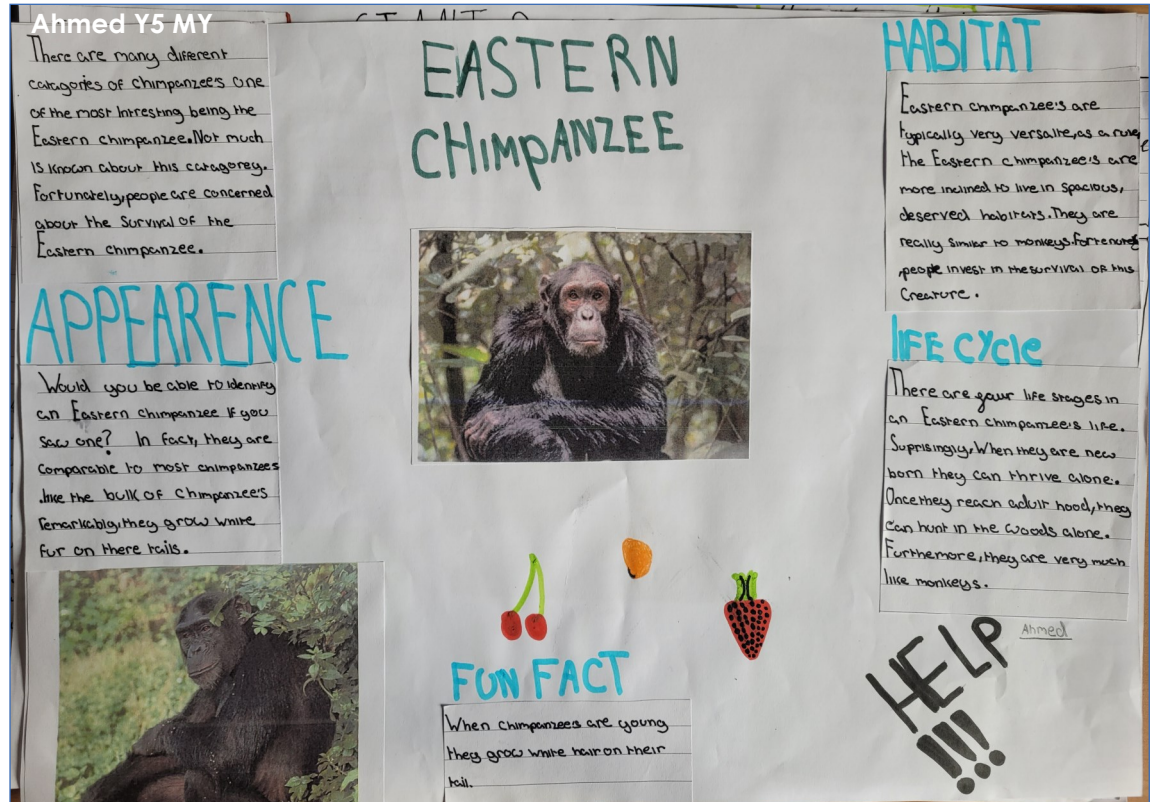 Ahmed Y5 MY
There are many different
catagories of chimpanzee's one
of the most Intresting being the
Eastern chimpanzee. Not much
is known about this catagorey.
Fortunately, people are concerned
about the Survival of the
Eastern chimpanzee.
APPEARENCE
Would you be able to identify
an Eastern chimpanzee if you
saw one? In fact, they are
comparable to most chimpanzees
.like the bulk of chimpanzee's
remarkably, they grow white
fur on there tails.
EASTERN
CHImpANZEE
FUN FACT
When chimpanzees are young
they grow white hair on their
tail.
HABITAT
Eastern chimpanzee's are
typically very versalte, as a rule,
the Eastern chimpanzee's are
more inclined to live in spacious,
deserved habitats. They are
really similar to monkeys.
,people invest in the survival of this
Creature.
lIFE CYcle
There are four life stages in
an Eastern chimpanzee's life.
Suprisingly, When they are new
born they can thrive alone.
Once they reach adult hood, they
can hunt in the woods alone.
Furthermore, they are very much
like monkeys.
Ahmed
HELP
!!!!